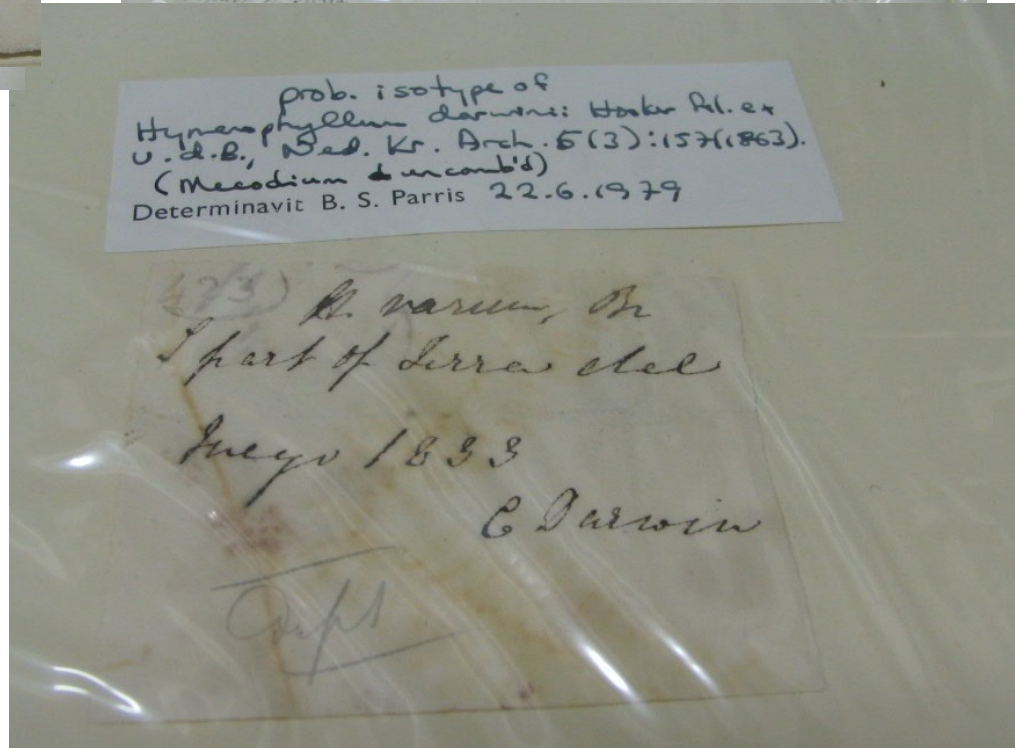 prob. isotype of
Hymenophyllum darwinii Hooker fil. ex
v.d.B., Ned. Kr. Arch. 5(3):157(1863).
(Mecodium uncomb'd)
Determinavit B. S. Parris 22.6.1979
H. varium, Br
S part of Terra del
Fuego 1833
C Darwin